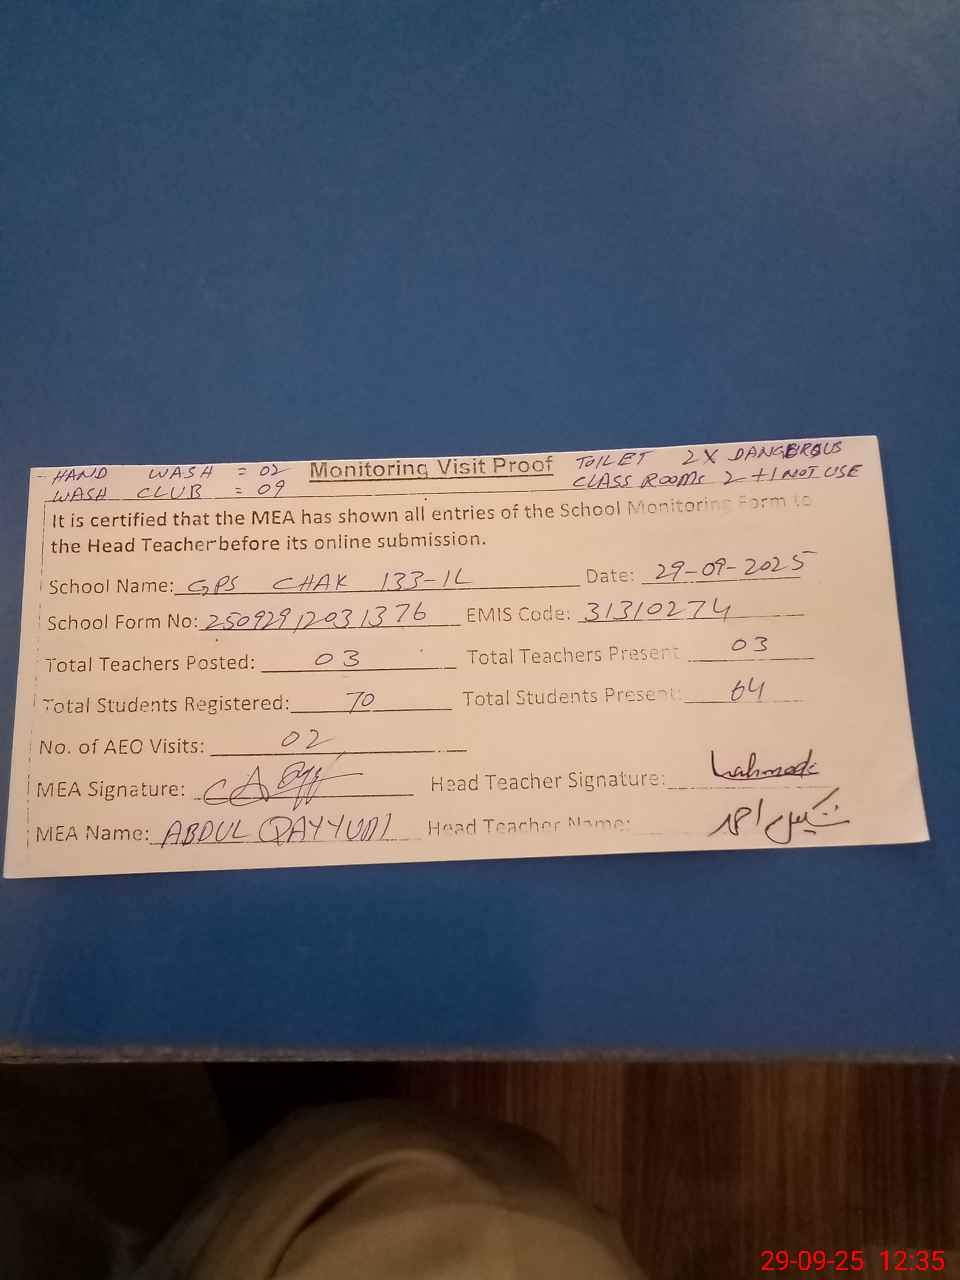 HAND WASH = 02 Monitoring Visit Proof TOILET 2X DANGEROUS
WASH CLUB = 09 CLASS ROOMS 2 +1 NOT USE
It is certified that the MEA has shown all entries of the School Monitoring Form to
the Head Teacher before its online submission.
School Name: GPS CHAK 133-1L Date: 29-09-2025
School Form No: 25092912031376 EMIS Code: 31310274
Total Teachers Posted: 03 Total Teachers Present 03
Total Students Registered: 70 Total Students Present: 64
No. of AEO Visits: 02
MEA Signature: Head Teacher Signature:
MEA Name: ABDUL QAYYUM Head Teacher Name: شکیل احمد
29-09-25 12:35